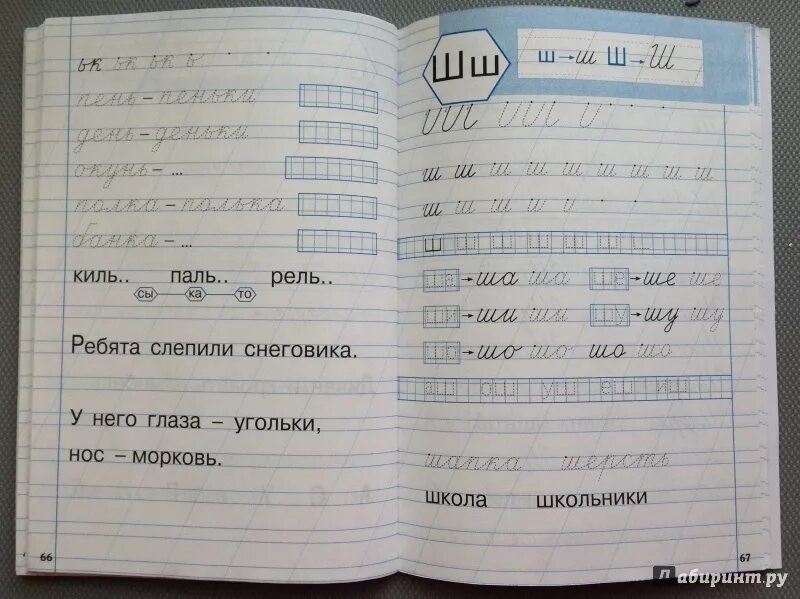 ьк ьк ьк ь
пень – пеньки
день – деньки
окунь – ...
полка – полька
банка – ...
киль.. паль.. рель..
сы ка то
Ребята слепили снеговика.
У него глаза – угольки,
нос – морковь.
66
Шш ш→ш Ш→Ш
ш ш ш ш ш ш ш ш ш
ш ш ш ш
ш ш ш ш ш ш
ша→ша ша ше→ше ше
ши→ши ши шу→шу шу
шо→шо шо шо шо
аш ош уш еш иш
шапка шерсть
школа школьники
67
Лабиринт.ру